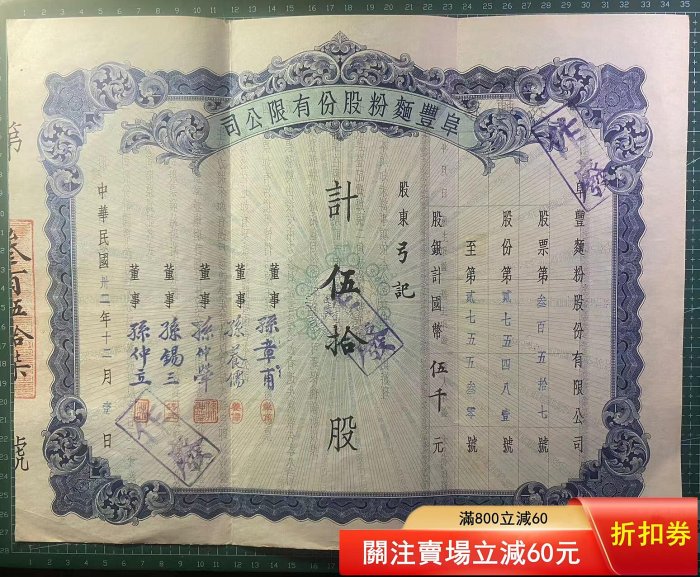 阜豐麵粉股份有限公司
阜豐麵粉股份有限公司
股票第叁百五拾七號
股份第貳七五四八壹號
至第貳七五五叁零號
股東弓記
股銀計國幣伍千元
計伍拾股
董事孫章甫
董事孫養儒
董事孫仲犖
董事孫錫三
董事孫仲立
中華民國卅二年十二月壹日
第叁百五拾柒號
滿800立減60
關注賣場立減60元
折扣券